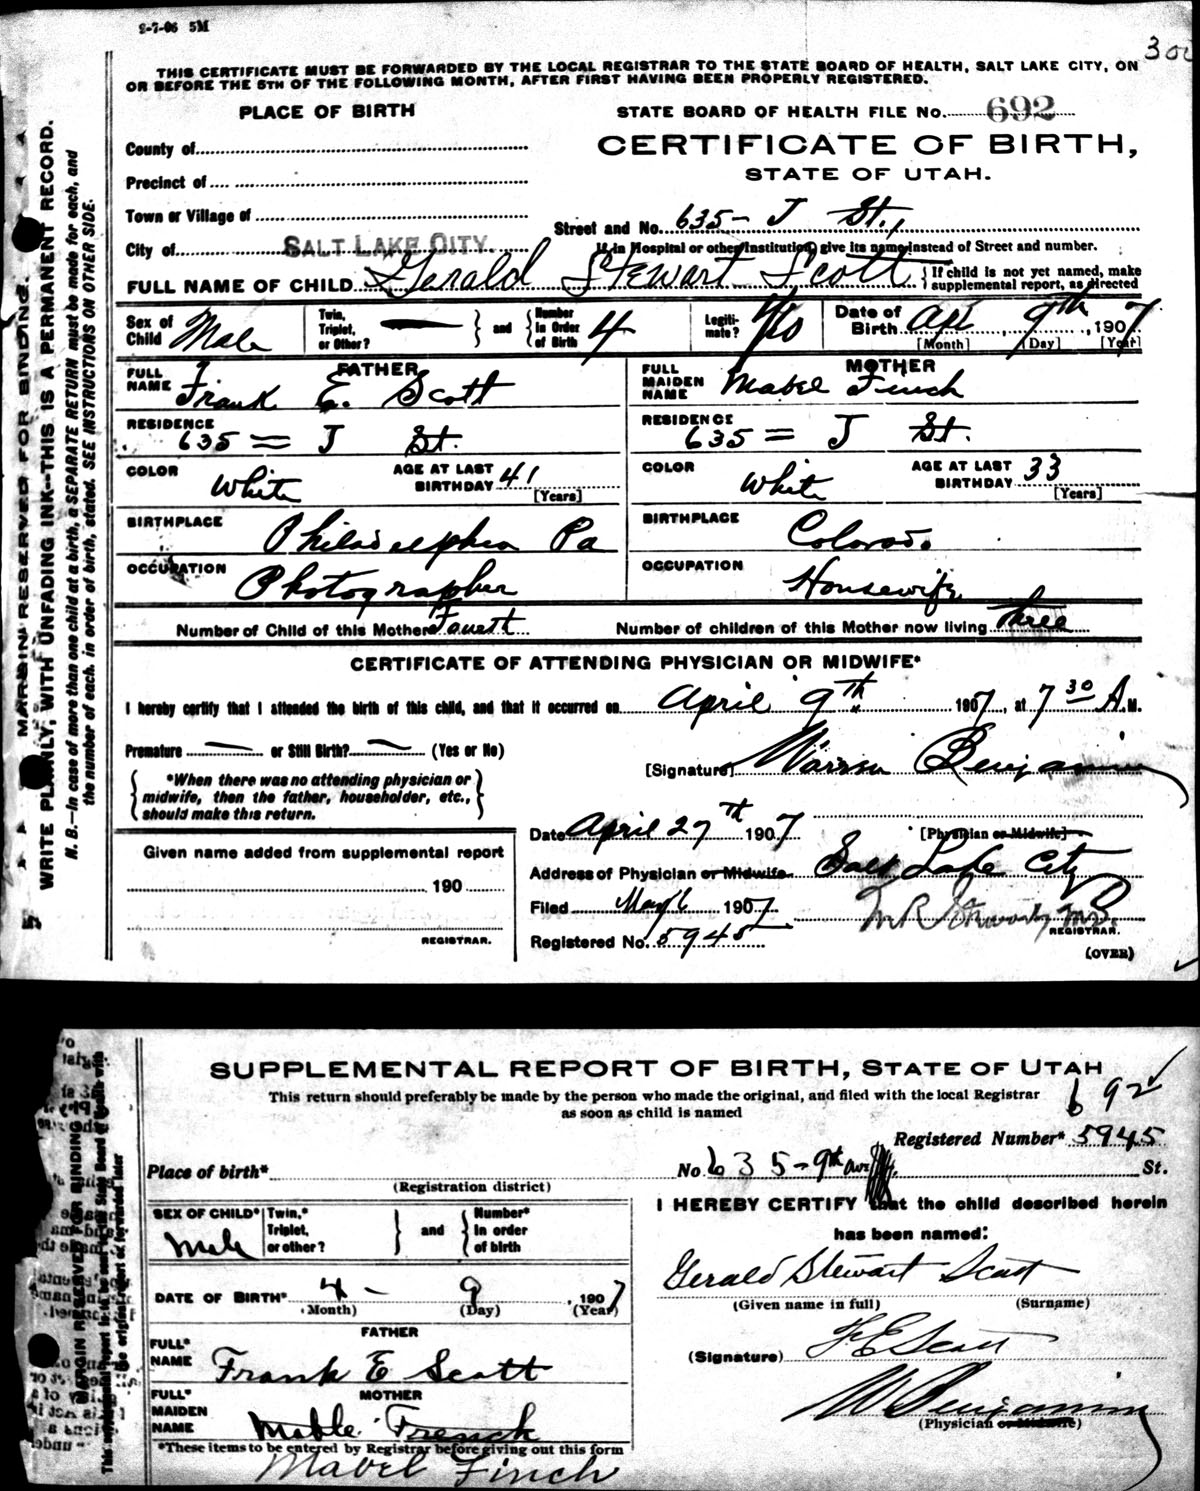 2-7-06 5M
300
THIS CERTIFICATE MUST BE FORWARDED BY THE LOCAL REGISTRAR TO THE STATE BOARD OF HEALTH, SALT LAKE CITY, ON
OR BEFORE THE 5TH OF THE FOLLOWING MONTH, AFTER FIRST HAVING BEEN PROPERLY REGISTERED.
PLACE OF BIRTH
STATE BOARD OF HEALTH FILE No. 692
CERTIFICATE OF BIRTH,
STATE OF UTAH.
County of
Precinct of
Town or Village of
Street and No. 635 - J St.,
City of SALT LAKE CITY.
If in Hospital or other Institution, give its name instead of Street and number.
FULL NAME OF CHILD Gerald Stewart Scott { If child is not yet named, make
supplemental report, as directed
Sex of Child Male
Twin, Triplet, or Other? — } and { Number In Order of Birth 4
Legiti-mate? Yes
Date of Birth Apr 9th, 1907
[Month] [Day] [Year]
FATHER
FULL NAME Frank E. Scott
MOTHER
FULL MAIDEN NAME Mabel Finch
RESIDENCE 635 = J St.
RESIDENCE 635 = J St.
COLOR White AGE AT LAST BIRTHDAY 41 [Years]
COLOR White AGE AT LAST BIRTHDAY 33 [Years]
BIRTHPLACE Philadelphia Pa
BIRTHPLACE Colorado
OCCUPATION Photographer
OCCUPATION Housewife
Number of Child of this Mother Fourth
Number of children of this Mother now living three
CERTIFICATE OF ATTENDING PHYSICIAN OR MIDWIFE*
I hereby certify that I attended the birth of this child, and that it occurred on April 9th. 1907, at 7 30 A.M.
Premature — or Still Birth? — (Yes or No)
[Signature] Warren Benjamin
*When there was no attending physician or
midwife, then the father, householder, etc.,
should make this return.
Date April 27th 1907
[Physician or Midwife]
Given name added from supplemental report
190
REGISTRAR.
Address of Physician or Midwife Salt Lake City
Filed May 6 1907
REGISTRAR.
Registered No. 5945
(OVER)
MARGIN RESERVED FOR BINDING.
WRITE PLAINLY, WITH UNFADING INK--THIS IS A PERMANENT RECORD.
N. B.—In case of more than one child at a birth, a SEPARATE RETURN must be made for each, and
the number of each, in order of birth, stated. SEE INSTRUCTIONS ON OTHER SIDE.
SUPPLEMENTAL REPORT OF BIRTH, STATE OF UTAH
This return should preferably be made by the person who made the original, and filed with the local Registrar
as soon as child is named
692
Registered Number* 5945
Place of birth* No. 635 - 9th Ave St.
(Registration district)
SEX OF CHILD* Male
Twin,* Triplet, or other? } and { Number* In order of birth
I HEREBY CERTIFY that the child described herein
has been named:
DATE OF BIRTH* 4 - 9, 1907
(Month) (Day) (Year)
Gerald Stewart Scott
(Given name in full) (Surname)
FATHER
FULL* NAME Frank E Scott
(Signature) F. E. Scott
MOTHER
FULL* MAIDEN NAME Mable French
W Benjamin
(Physician or Midwife)
*These items to be entered by Registrar before giving out this form
Mabel Finch
MARGIN RESERVED FOR BINDING